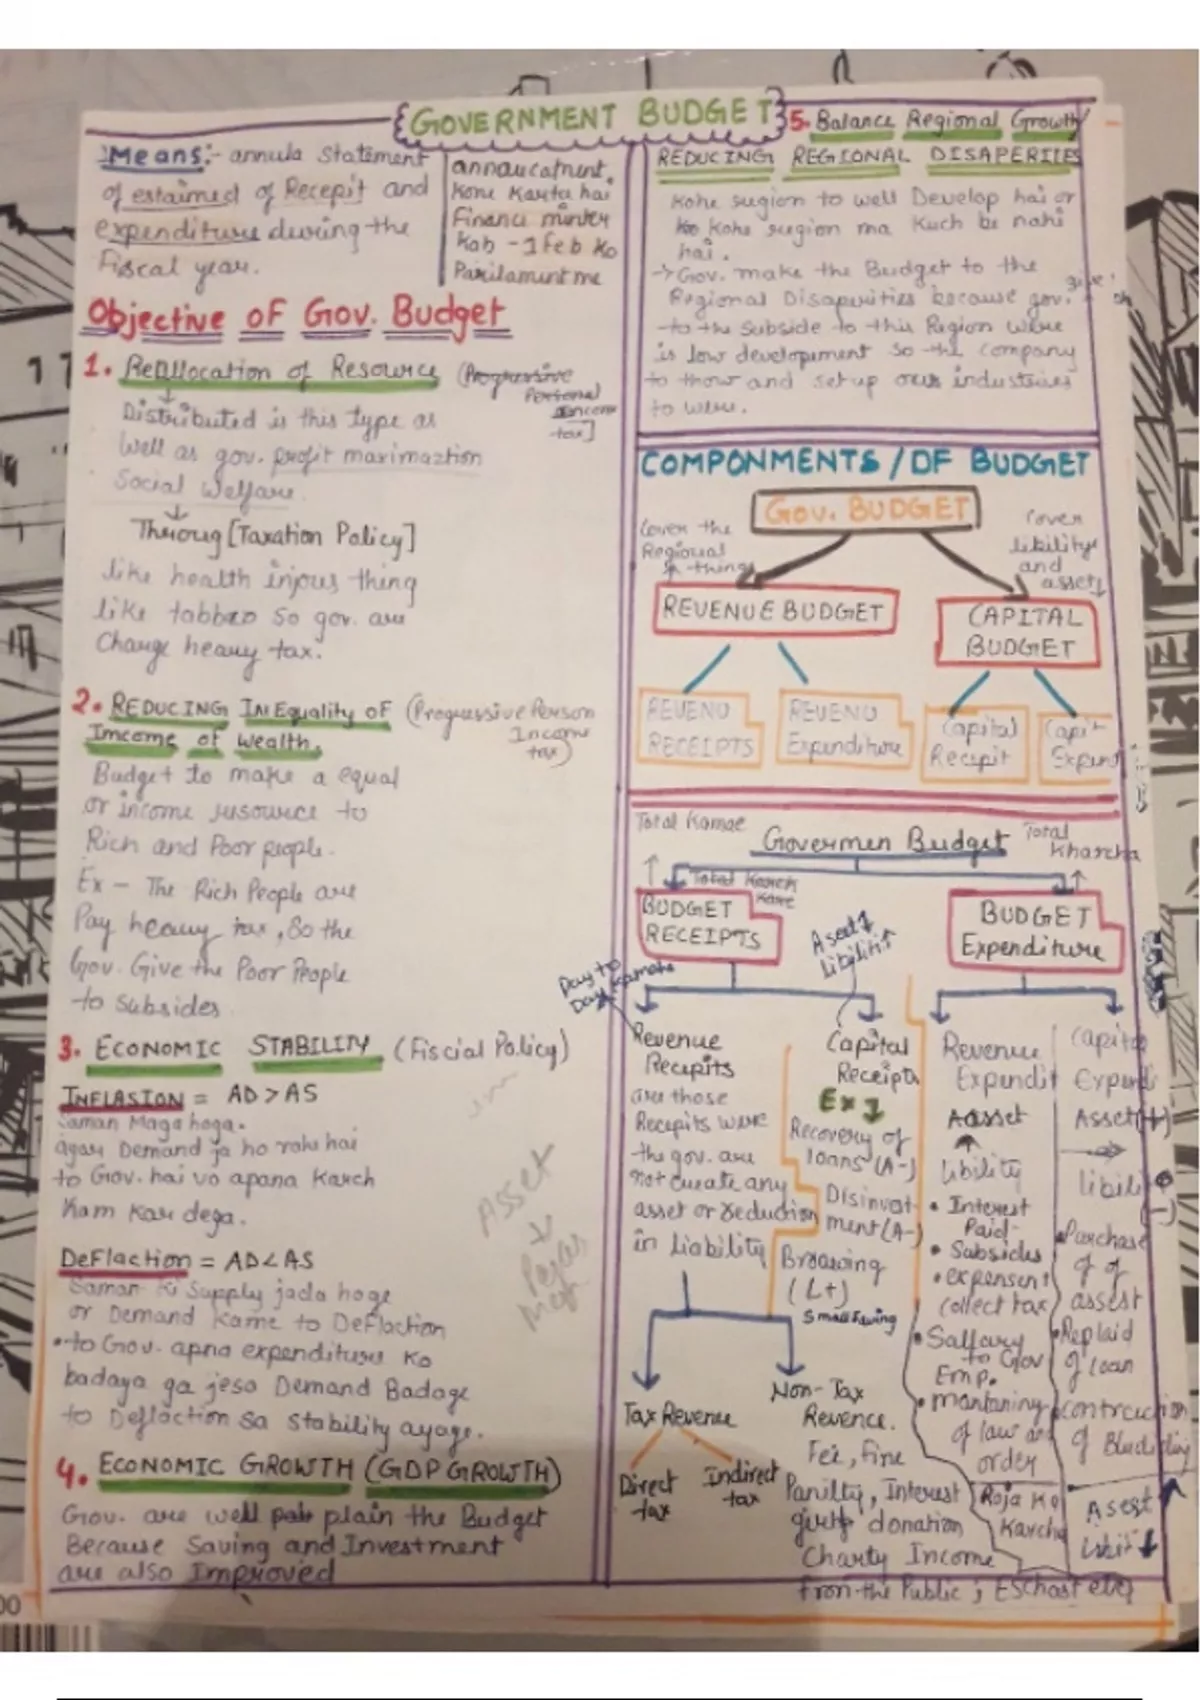 GOVERNMENT BUDGET
Means:- annula Statement
of estaimed of Recepit and
expenditure dewring the
Fiscal year.
annoucatment,
Kone Karta hai
Financi minter
Kab - 1 Feb Ko
Parilament me
Objective OF Gov. Budget
1. ReAllocation of Resource (Progressive
Personal
Income
tax]
Distributed is this type as
Well as gov. profit marimaztion
Social Welfare.
Throug [Taxation Policy]
like health injous thing
like tabbao so gov. are
Change heavy tax.
2. REDUCING INEquality OF (Progressive Person
Income
tax)
Imcome of Wealth.
Budget to make a equal
or income resource to
Rich and Poor people.
Ex - The Rich People are
Pay heavy tax, So the
Gov. Give the Poor People
to Subsides
3. ECONOMIC STABILITY (Fiscial Policy)
INFLASION = AD > AS
Saman Maga hoga.
agar Demand ja ho rahe hai
to Gov. hai vo apana Karch
Kam Kar dega.
Asset
DeFlaction = AD < AS
Saman Ki Supply jada hoge
or Demand Kame to DeFlaction
• to Gov. apna expenditure Ko
badaya ga jeso Demand Badage
to Deflaction sa Stability ayage.
4. ECONOMIC GROWTH (GDP GROWTH)
Gov. are well pab plain the Budget
Because Saving and Investment
are also Improved
5. Balance Regional Growth/
REDUCING REGIONAL DISAPERITES
Kohe region to well Develop hai or
Ko Kohe region ma Kuch be nahi
hai.
→ Gov. make the Budget to the
Regional Disaperities because gov. give
to the Subside to this Region were
is low development so the company
to thow and setup our industries
to were.
COMPONMENTS / OF BUDGET
Gov. BUDGET
Cover the
Regional
thing
Cover
libility
and
assets
REVENUE BUDGET
CAPITAL
BUDGET
REVENU
RECEIPTS
REVENU
Expenditure
Capital
Recepit
Capit
Expend
Total Kamae
Govermen Budget
Total
Kharcha
Total Karch
Kare
BUDGET
RECEIPTS
BUDGET
Expenditure
Aseet↓
libiliti↑
Day to
Day Kamahe
Revenue
Recepits
are those
Recepits were
the gov. are
not cureate any
asset or reduction
in liability
Capital
Receipts
Ex
Recovery of
loans (A-)
Disinvst-
ment (A-)
Browing
(L+)
Small Saving
Revenue
Expendit
Aasset
libility
• Interest
Paid-
• Subsides
• expensent
collect tax
• Sallary
to Gov
Emp.
• mantaning
of law and
order
Roja Ke
Karcha
Capital
Expendi
Asset(+)
libili
(-)
• Purchase
of of
assest
• Replaid
of loan
• contraction
of Bluilding
Asest
libit↓
Tax Revenue
Direct
tax
Indirect
tax
Non-Tax
Revence.
Fee, Fine
Panilty, Interest
giert donation
Charty Income
from the Public, Eschast etc